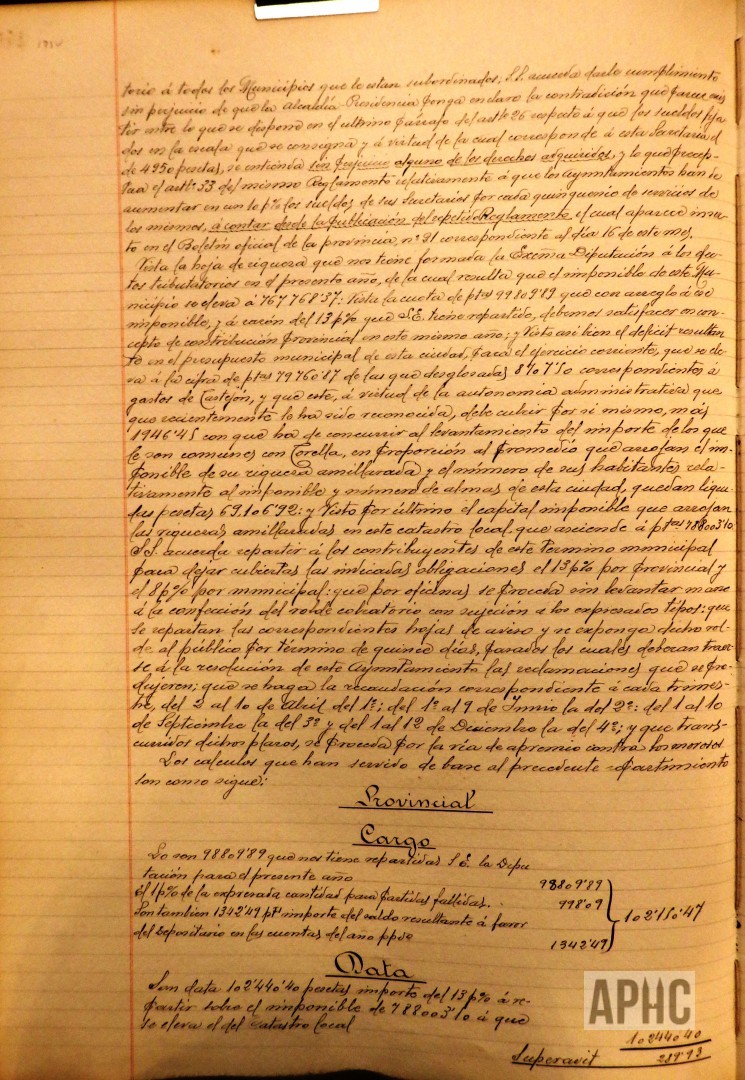 torio á todos los Municipios que le estan subordinados; S.S. acuerda darle cumplimiento
sin perjuicio de que la Alcaldía-Presidencia ponga en claro la contradición que parece exis
tir entre lo que se dispone en el ultimo párrafo del artº 26 respecto á que los sueldos fija
dos en la escala que se consigna y á virtud de la cual corresponde á esta Secretaria el
de 4950 pesetas, se entienda sin perjuicio alguno de los derechos adquiridos, y lo que precep-
túa el artº 33 del mismo Reglamento relativamente á que los Ayuntamientos han de
aumentar en un 10 p% los sueldos de sus Secretarios por cada quinquenio de servicios de
los mismos, á contar desde la publicación del repetido Reglamento, el cual aparece inser
to en el Boletín oficial de la provincia, nº 31 correspondiente al día 16 de este mes.
Vista la hoja de riqueza que nos tiene formada la Excma Diputación á los efec
tos tributatorios en el presente año, de la cual resulta que el imponible de este Mu-
nicipio se eleva á 767768'37: Vista la cuota de ptas 99809'89 que con arreglo á ese
imponible, y á razón del 13 p% que S.E. tiene repartido, debemos satisfacer en con-
cepto de contribución provincial en este mismo año; y Visto asi bien el deficit resultan
te en el presupuesto municipal de esta ciudad, para el ejercicio corriente, que se ele-
va á la cifra de ptas 79760'87 de las que desglosadas 8707'50 correspondientes á
gastos de Castejon, y que este, á virtud de la autonomia administrativa que
que recientemente le ha sido reconocida, debe cubrir por si mismo, más
1946'45 con que ha de concurrir al levantamiento del importe de los que
le son comunes con Corella, en proporción al promedio que arrojan el im-
ponible de su riqueza amillarada y el número de sus habitantes rela-
tivamente al imponible y número de almas de esta ciudad, quedan liqui-
das pesetas 69106'92: y Visto por último el capital imponible que arrojan
las riquezas amillaradas en este catastro local, que asciende á ptas 788003'10
S.S. acuerda repartir á los contribuyentes de este termino municipal
para dejar cubiertas las indicadas obligaciones el 13 p% por provincial y
el 8 p% por municipal: que por oficinas se proceda sin levantar mano
á la confección del rolde cobratorio con sujeción a los expresados tipos: que
se repartan las correspondientes hojas de aviso y se exponga dicho rol-
de al público por término de quince días, pasados los cuales deberan traer-
se á la resolución de este Ayuntamiento las reclamaciones que se pro-
dujeren; que se haga la recaudación correspondiente á cada trimes-
tre, del 2 al 10 de Abril del 1º; del 1º al 9 de Junio la del 2º; del 1 al 10
de Septiembre la del 3º y del 1 al 12 de Diciembre la del 4º; y que trans-
curridos dichos plazos, se proceda por la vía de apremio contra los morosos
Los calculos que han servido de base al precedente repartimiento
son como sigue:
Provincial
Cargo
Lo son 98809'89 que nos tiene repartidas S.E. la Dipu
tación para el presente año 98809'89
El 1 p% de la expresada cantidad para partidas fallidas. 998'09
Son tambien 1342'49 pts importe del saldo resultante á favor 102'150'47
del Depositario en las cuentas del año ppdo 1342'49
Data
Son data 102'440'40 pesetas importe del 13 p% á re-
partir sobre el imponible de 788003'10 á que
se eleva el del catastro local
102440 40
Superavit 289'93
APHC